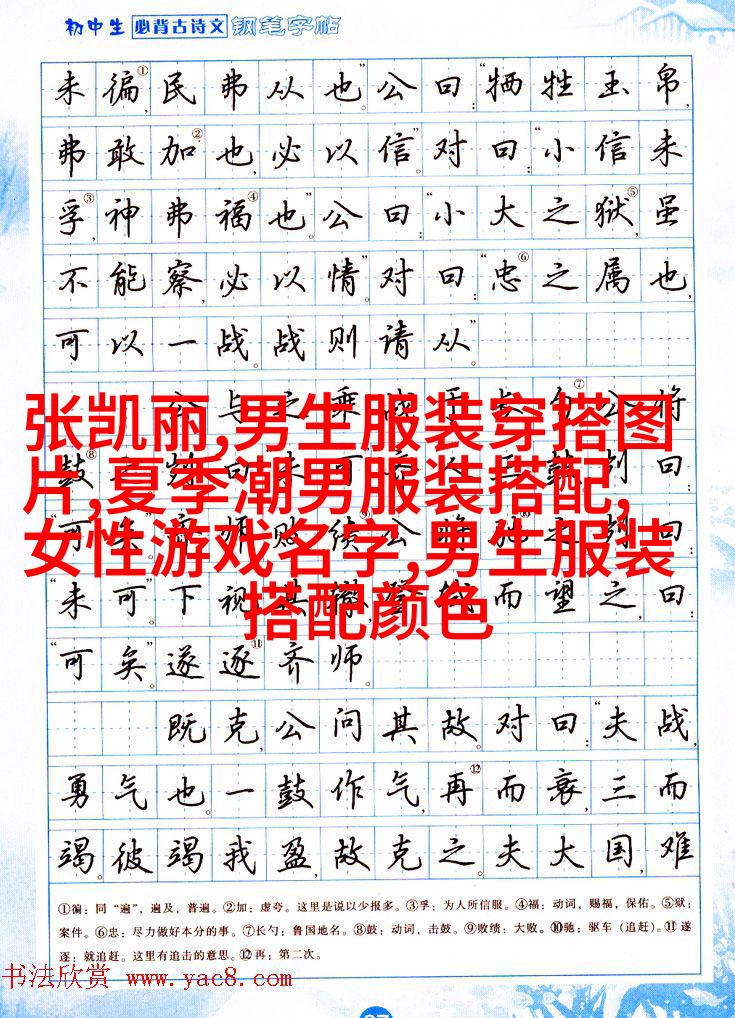 初中生 必背古诗文 钢笔字帖
未徧①,民弗从也。"公曰:"牺牲玉帛,
弗敢加②也,必以信。"对曰:"小信未
孚③,神弗福④也。"公曰:"小大之狱⑤,虽
不能察,必以情。"对曰:"忠⑥之属也,
可以一战。战则请从。"
公与之乘 战于长勺⑦公将
鼓⑧之 刿曰 未可 齐人三鼓 刿曰:
"可矣 齐师败绩 公将驰⑩之 刿曰:
"未可。"下视其辙 登轼而望之,曰:
"可矣。"遂逐⑪齐师。
张凯丽,男生服装穿搭图
片,夏季潮男服装搭配,
女性游戏名字,男生服装
搭配颜色
既克,公问其故。对曰:"夫战,
勇气也。一鼓作气,再⑫而衰,三而
竭。彼竭我盈,故克之。夫大国,难
①徧:同"遍",遍及,普遍。②加:虚夸。这里是说以少报多。③孚:为人所信服。④福:动词,赐福,保佑。⑤狱:
案件。⑥忠:尽力做好本分的事。⑦长勺:鲁国地名。⑧鼓:动词,击鼓。⑨败绩:大败。⑩驰:驱车(追赶)。⑪遂
逐:就追赶。这里有追击的意思。⑫再:第二次。
书法欣赏 www.yac8.com